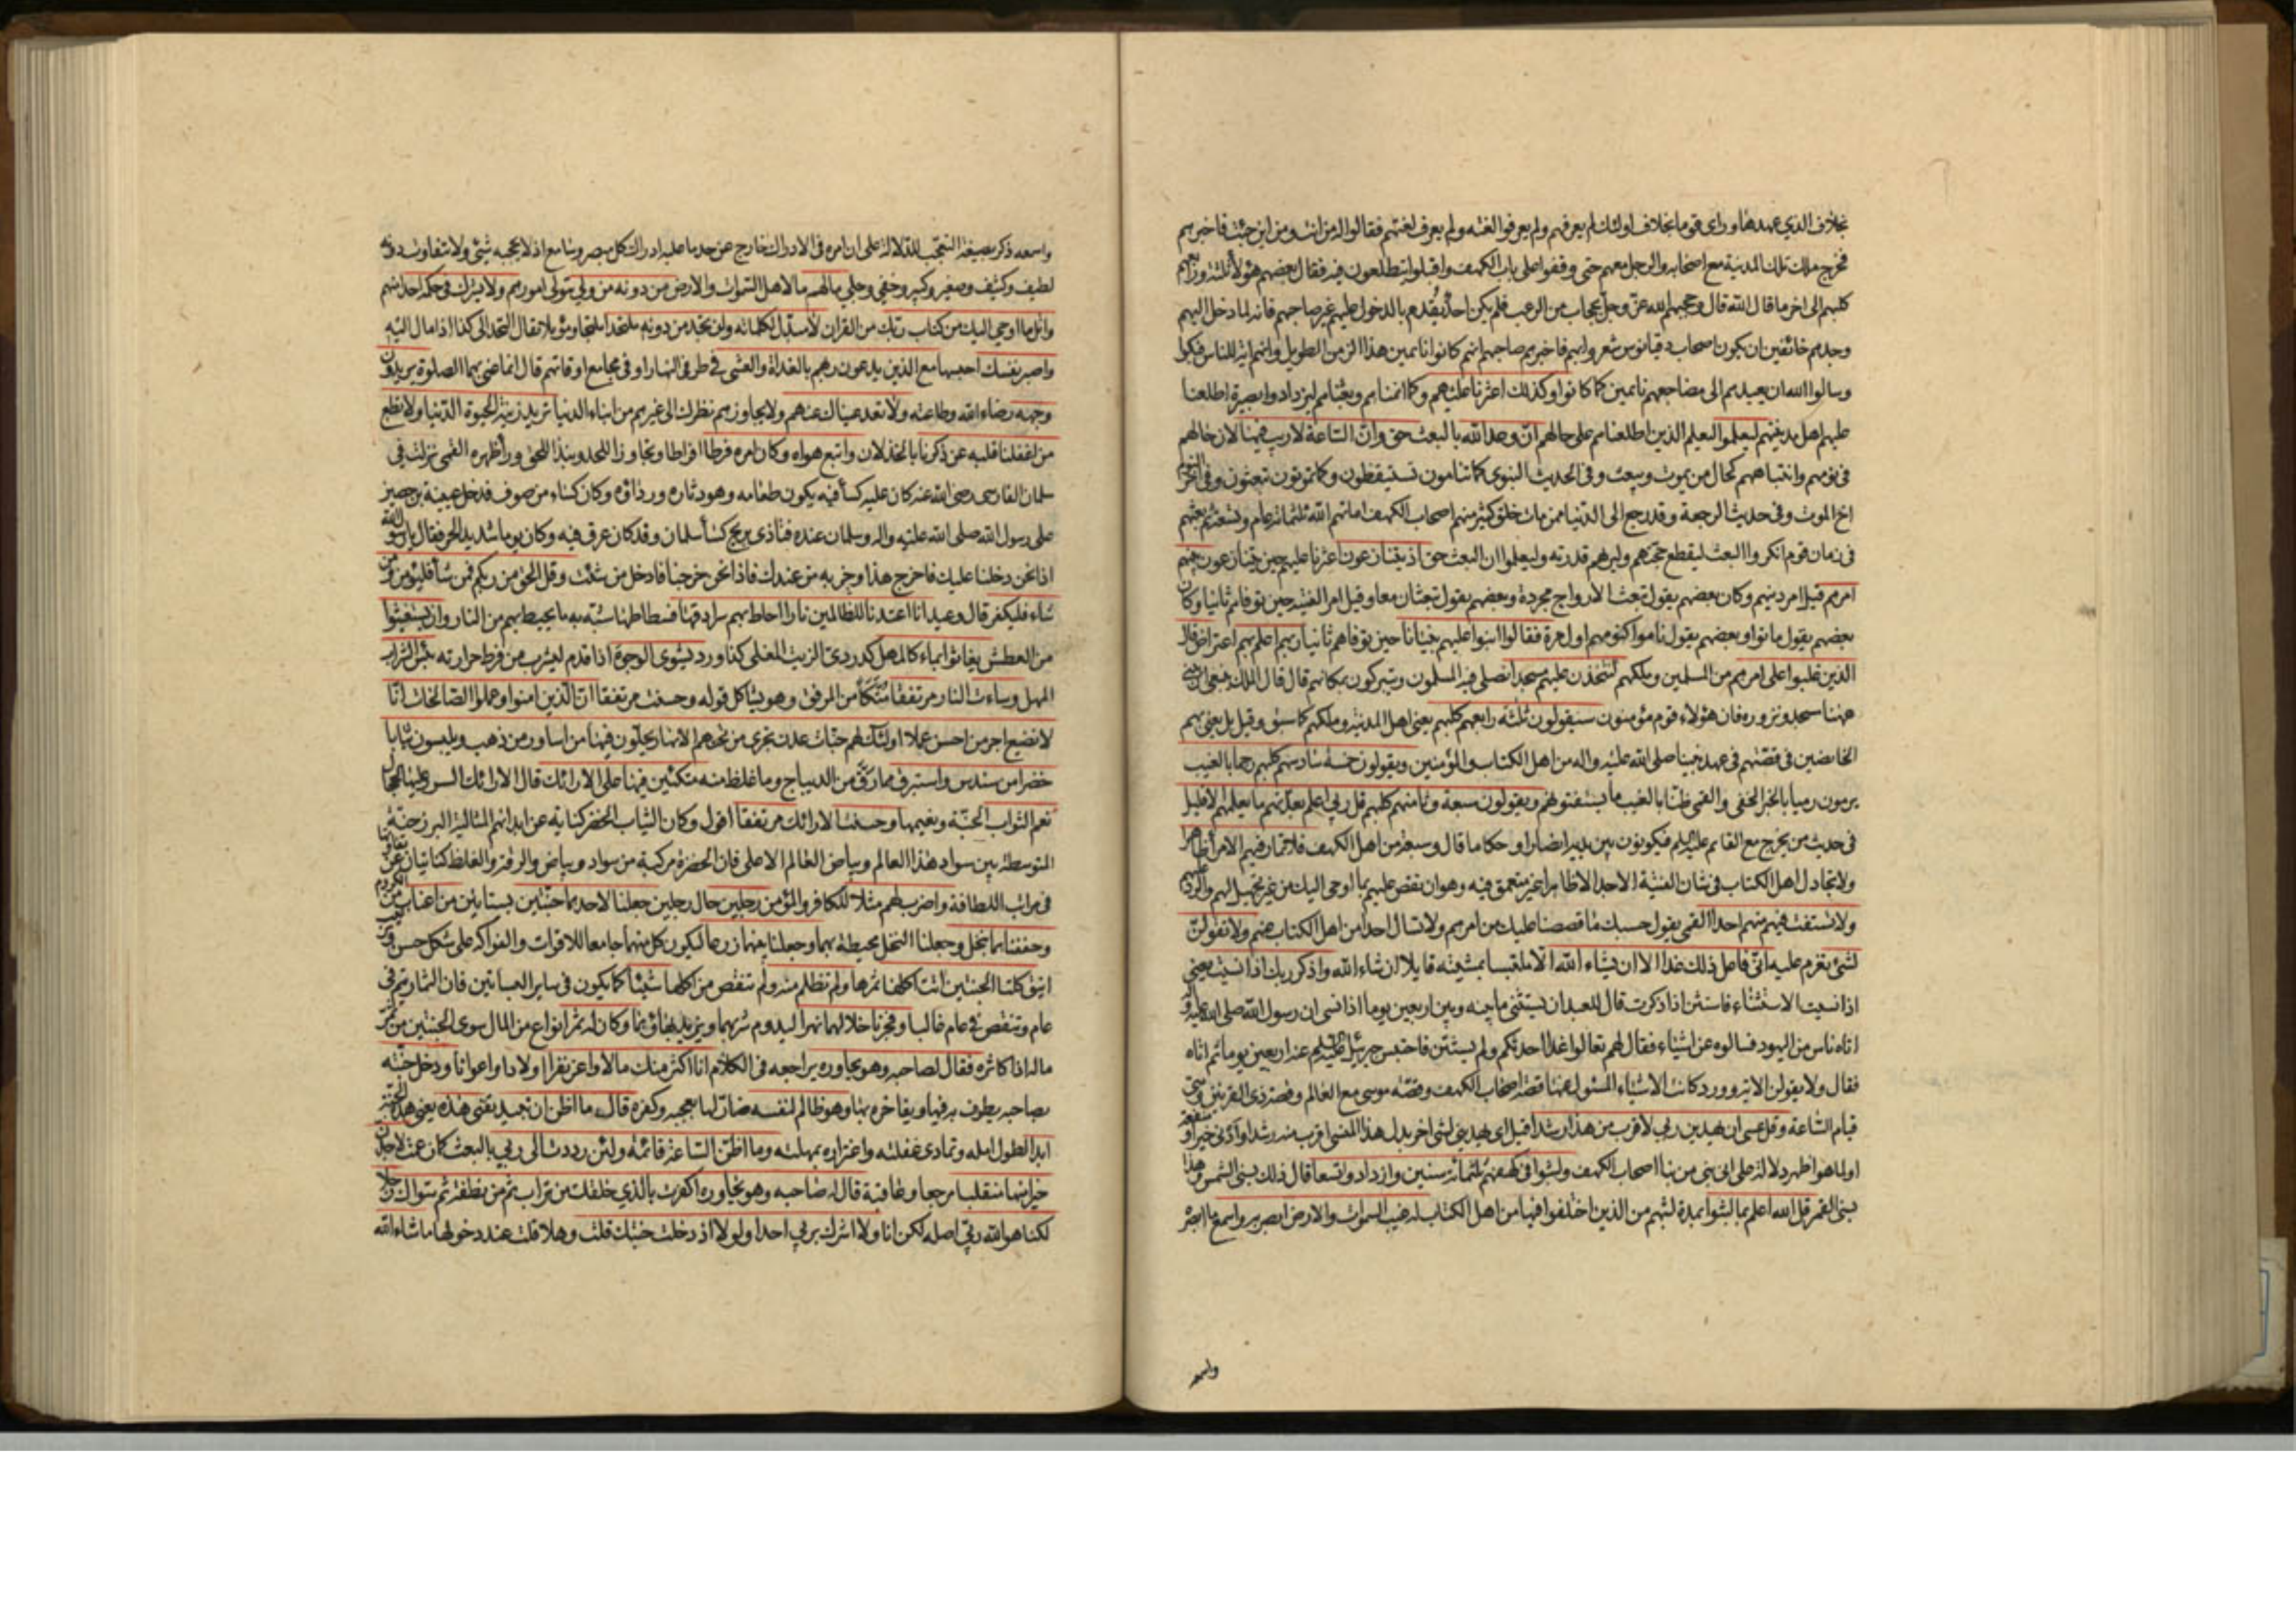 بخلاف الذي عهدها وراى قوما بخلاف اولئك لم يعرفهم ولم يعرفوا لغته ولم يعرف لغتهم فقالوا له من انت ومن اين جئت فاخبرهم
فخرج ملك تلك المدينة مع اصحابه والرجل معهم حتى وقفوا على باب الكهف واقبلوا يتطلعون فيه فقال بعضهم هؤلاء ثلثة ورابعهم
كلبهم الى اخر ما قال الله قال وحجبهم الله عز وجل بحجاب من الرعب فلم يكن احد يقدم بالدخول عليهم غير صاحبهم فانه لما دخل اليهم
وجدهم خائفين ان يكون اصحاب دقيانوس شعروا بهم فاخبرهم صاحبهم انهم كانوا نائمين هذا الزمن الطويل وانهم اية للناس فبكوا
وسالوا الله ان يعيدهم الى مضاجعهم نائمين كما كانوا وكذلك اعثرنا عليهم وكما انمناهم وبعثناهم ليزدادوا بصيرة اطلعنا
عليهم اهل مدينتهم ليعلموا ليعلم الذين اطلعناهم على حالهم ان وعد الله بالبعث حق وان الساعة لا ريب فيها لان حالهم
في نومهم وانتباههم كحال من يموت ويبعث وفي الحديث النبوي كما تنامون تستيقظون وكما تموتون تبعثون وفي اخر النوم
اخ الموت وفي حديث الرجعة وقد رجع الى الدنيا ممن مات خلق كثير منهم اصحاب الكهف اماتهم الله ثلثمائة عام وتسعة ثم بعثهم
في زمان قوم انكروا البعث ليقطع حجتهم وليريهم قدرته وليعلموا ان البعث حق اذ يتنازعون اعثرنا عليهم حين يتنازعون بينهم
امرهم قيل امر دينهم وكان بعضهم يقول تبعث الارواح مجردة وبعضهم يقول تبعثان معا وقيل امر الفتية حين توفاهم ثانيا وكان
بعضهم يقول ماتوا وبعضهم يقول ناموا كنومهم اول مرة فقالوا ابنوا عليهم بنيانا حين توفاهم ثانيا ربهم اعلم بهم اعتراض قال
الذين غلبوا على امرهم من المسلمين وملكهم لنتخذن عليهم مسجدا نصلي فيه المسلمون ويتبركون بمكانهم قال قال الملك ينبغي ان نبني
ههنا مسجد ونزوره فان هؤلاء قوم مؤمنون سيقولون ثلثة رابعهم كلبهم يعني اهل المدينة وملكهم كما سبق وقيل بل يعني بهم
الخائضين في قصتهم في عهد نبينا صلى الله عليه واله من اهل الكتاب والمؤمنين ويقولون خمسة سادسهم كلبهم رجما بالغيب
يرمون رميا بالخبر الخفي والقمي ظنا بالغيب ما يستفتونهم ويقولون سبعة وثامنهم كلبهم قل ربي اعلم بعدتهم ما يعلمهم الا قليل
في حديث من يخرج مع القائم عليه السلم فيكونون بين يديه انصارا وحكاما قال وسبعة من اهل الكهف فلا تمار فيهم الا مراء ظاهرا
ولا تجادل اهل الكتاب في شان الفتية الا جدالا ظاهرا غير متعمق فيه وهو ان تقص عليهم بما اوحي اليك من غير تجهيل لهم والرد عليهم
ولا تستفت فيهم منهم احدا القمي يقول حسبك ما قصصنا عليك من امرهم ولا تسال احدا من اهل الكتاب عنهم ولا تقولن
لشئ تعزم عليه اني فاعل ذلك غدا الا ان يشاء الله الا ملتبسا بمشيته قايلا ان شاء الله واذكر ربك اذا نسيت يعني
اذا نسيت الاستثناء فاستثن اذا ذكرت قال للعبد ان يستثني ما بينه وبين اربعين يوما اذا نسي ان رسول الله صلى الله عليه واله
اتاه ناس من اليهود فسالوه عن اشياء فقال لهم تعالوا غدا احدثكم ولم يستثن فاحتبس جبرئيل عليه السلم عنه اربعين يوما ثم اتاه
فقال ولا تقولن الاية وورد كانت الاشياء المسئول عنها قصة اصحاب الكهف وقصة موسى مع العالم وقصة ذي القرنين ومتى
قيام الساعة وقل عسى ان يهدين ربي لاقرب من هذا رشدا قيل اي يهديني لشئ اخر بدل هذا المنسي اقرب منه رشدا وادنى خيرا ومنفعة
او لما هو اظهر دلالة على اني نبي من نبا اصحاب الكهف ولبثوا في كهفهم ثلثمائة سنين وازدادوا تسعا قال ذلك بسني الشمس وهذا
بسني القمر قل الله اعلم بما لبثوا بمدة لبثهم من الذين اختلفوا فيها من اهل الكتاب له غيب السموات والارض ابصر به واسمع ما ابصره
واسمعه
واسمعه ذكر بصيغة التعجب للدلالة على ان امره في الادراك خارج عن حد ما عليه ادراك كل مبصر وسامع اذ لا يحجبه شئ ولا يتفاوت دونه
لطيف وكثيف وصغير وكبير وخفي وجلي ما لهم ما لاهل السموات والارض من دونه من ولي يتولى امورهم ولا يشرك في حكمه احدا منهم
واتل ما اوحي اليك من كتاب ربك من القران لا مبدل لكلماته ولن تجد من دونه ملتحدا ملتجا وموئلا يقال التحد الى كذا اذا مال اليه
واصبر نفسك احبسها مع الذين يدعون ربهم بالغداة والعشي في طرفي النهار او في مجامع اوقاتهم قال انما عنى بهما الصلوة يريدون
وجهه رضاء الله وطاعته ولا تعد عيناك عنهم ولا يجاوزهم نظرك الى غيرهم من ابناء الدنيا تريد زينة الحيوة الدنيا ولا تطع
من اغفلنا قلبه عن ذكرنا بالخذلان واتبع هواه وكان امره فرطا افراطا وتجاوزا للحد ونبذا للحق وراء ظهره القمي نزلت في
سلمان الفارسي رضي الله عنه كان عليه كساء فيه يكون طعامه وهو دثاره ورداؤه وكان كساء من صوف فدخل عيينة بن حصين
على رسول الله صلى الله عليه واله وسلمان عنده فتاذى بريح كساء سلمان وقد كان عرق فيه وكان يوما شديد الحر فقال يا رسول الله
اذا نحن دخلنا عليك فاخرج هذا وحزبه من عندك فاذا نحن خرجنا فادخل من شئت وقل الحق من ربكم فمن شاء فليؤمن ومن
شاء فليكفر قال وعيد انا اعتدنا للظالمين نارا احاط بهم سرادقها فسطاطها شبه به ما يحيط بهم من النار وان يستغيثوا
من العطش يغاثوا بماء كالمهل كدردي الزيت المغلي كذا ورد يشوي الوجوه اذا قدم ليشرب من فرط حرارته بئس الشراب
المهل وساءت النار مرتفقا متكأ من المرفق وهو يشاكل قوله وحسنت مرتفقا ان الذين امنوا وعملوا الصالحات انا
لا نضيع اجر من احسن عملا اولئك لهم جنات عدن تجري من تحتهم الانهار يحلون فيها من اساور من ذهب ويلبسون ثيابا
خضرا من سندس واستبرق مما رق من الديباج وما غلظ منه متكئين فيها على الارائك قال الارائك السرر عليها الحجال
نعم الثواب الجنة ونعيمها وحسنت الارائك مرتفقا اقول وكان الثياب الخضر كناية عن ابدانهم المثالية البرزخية
المتوسطة بين سواد هذا العالم وبياض العالم الاعلى فان الخضرة مركبة من سواد وبياض والرقة والغلظ كنايتان عن تفاوتها
في مراتب اللطافة واضرب لهم مثلا للكافر والمؤمن رجلين حال رجلين جعلنا لاحدهما جنتين بستانين من اعناب من الكروم
وحففناهما بنخل وجعلنا النخل محيطة بهما وجعلنا بينهما زرعا ليكون كل منهما جامعا للاقوات والفواكه على شكل حسن وترتيب
انيق كلتا الجنتين اتت اكلها ثمرها ولم تظلم منه ولم تنقص من اكلها شيئا كما يكون في ساير البساتين فان الثمار تتم في
عام وتنقص في عام غالبا وفجرنا خلالهما نهرا ليدوم شربهما ويزيد بهاؤهما وكان له ثمر انواع من المال سوى الجنتين من ثمر
ماله اذا كاثره فقال لصاحبه وهو يحاوره يراجعه في الكلام انا اكثر منك مالا واعز نفرا اولادا واعوانا ودخل جنته
بصاحبه يطوف به فيها ويفاخره بها وهو ظالم لنفسه ضار لها بعجبه وكفره قال ما اظن ان تبيد تفنى هذه يعني هذه الجنة
ابدا لطول امله وتمادي غفلته واغتراره بمهلته وما اظن الساعة قائمة ولئن رددت الى ربي بالبعث كما زعمت لاجدن
خيرا منها منقلبا مرجعا وعاقبة قال له صاحبه وهو يحاوره اكفرت بالذي خلقك من تراب ثم من نطفة ثم سواك رجلا
لكنا هو الله ربي اصله لكن انا ولا اشرك بربي احدا ولولا اذ دخلت جنتك قلت وهلا قلت عند دخولها ما شاء الله